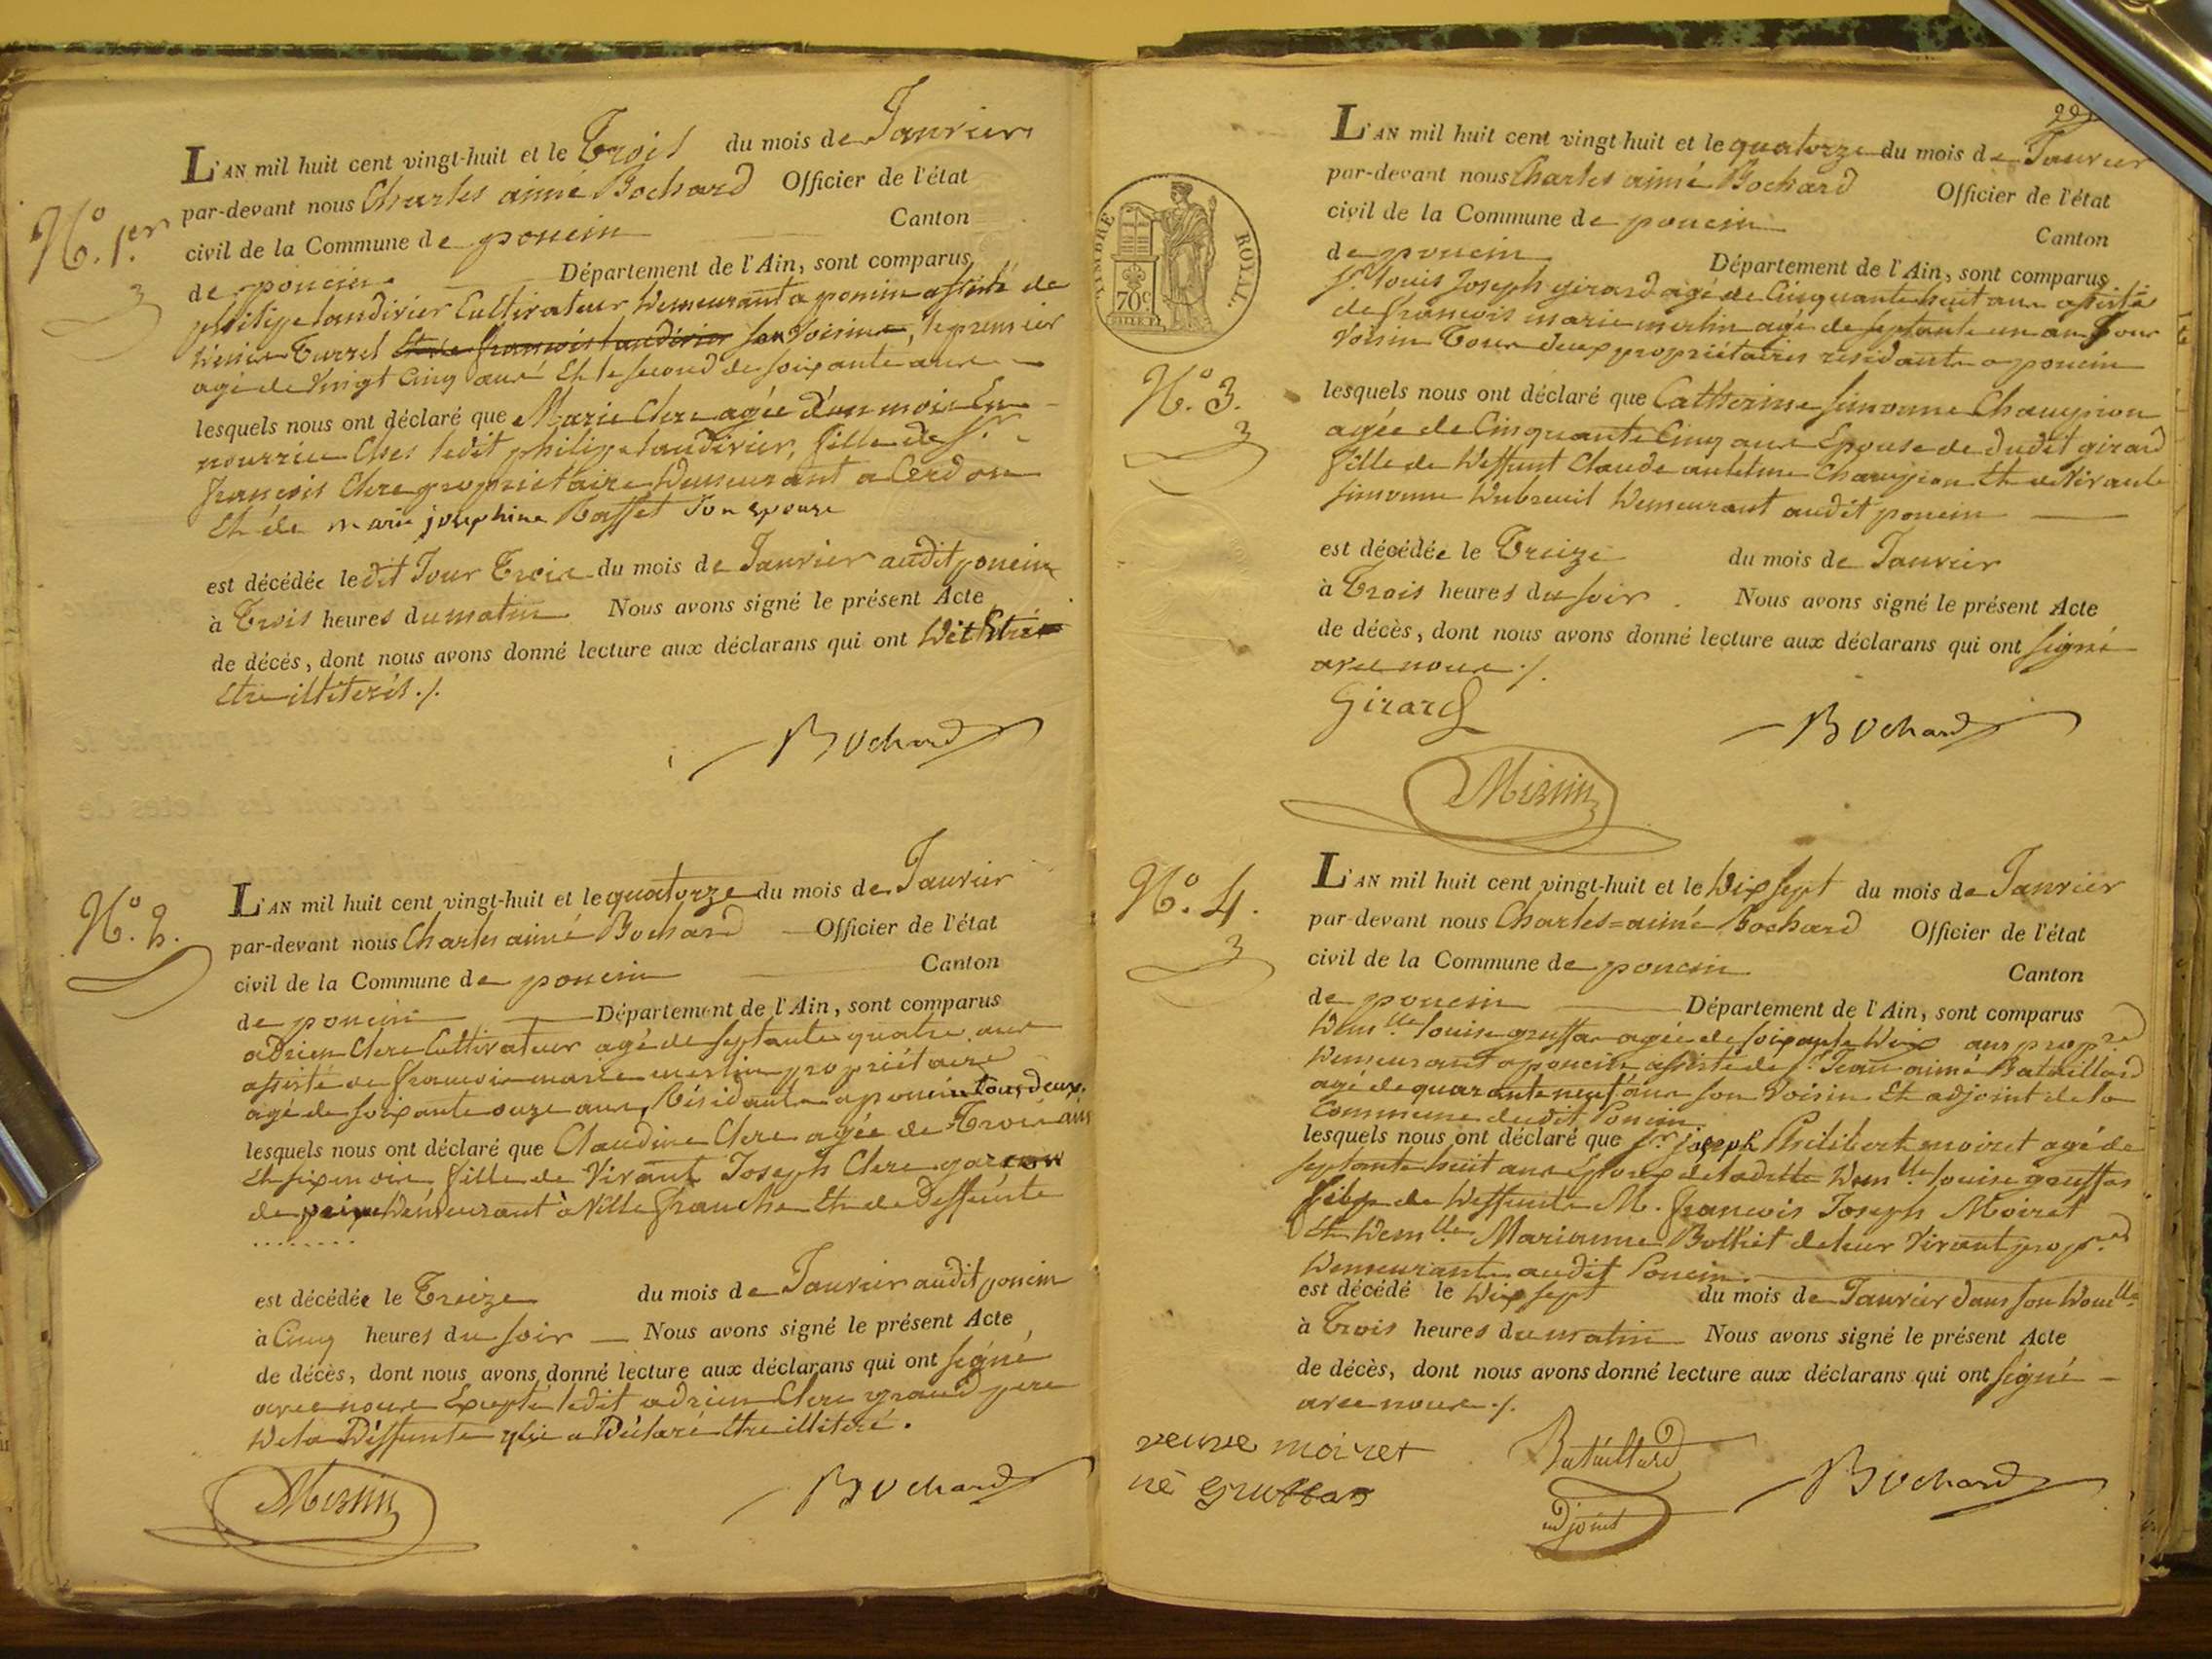 N.º 1.er
L'AN mil huit cent vingt-huit et le Trois du mois de Janvier
par-devant nous Charles aimé Bochard Officier de l'état
civil de la Commune de poncin Canton
de poncin Département de l'Ain, sont comparus
philipe landivier Cultivateur demeurant a poncin assisté de
Turrel son voisin, le premier
agé de vingt Cinq ans et le second de soixante ans
lesquels nous ont déclaré que Marie Clere agée d'un mois En
nourrice Ches ledit philipe landivier, fille de Sr.
françois Clere propriétaire demeurant a Cerdon
Et de marie josephine Basset son epouse
est décédée ledit Jour Trois du mois de Janvier audit poncin
à Trois heures du matin Nous avons signé le présent Acte
de décés, dont nous avons donné lecture aux déclarans qui ont dit
être illiterés ./.
Bochard
N.º 2.
L'AN mil huit cent vingt-huit et le quatorze du mois de Janvier
par-devant nous Charles aimé Bochard Officier de l'état
civil de la Commune de poncin Canton
de poncin Département de l'Ain, sont comparus
adrien Clere Cultivateur agé de septante quatre ans
assisté de francois marie merlin propriétaire
agé de soixante onze ans, Résidants a poncin tous deux.
lesquels nous ont déclaré que Claudine Clere agée de Trois ans
Et six mois fille de vivant Joseph Clere garcon
de demeurant à Ville franche Et de deffunte
........
est décédée le Treize du mois de Janvier audit poncin
à Cinq heures du soir Nous avons signé le présent Acte
de décès, dont nous avons donné lecture aux déclarans qui ont signé
avec nous Excepté ledit adrien Clere grand pere
de la Deffunte qui a Déclaré être illiteré.
Bochard
TIMBRE ROYAL.
70c
N.º 3.
L'AN mil huit cent vingt-huit et le quatorze du mois de Janvier
par-devant nous Charles aimé Bochard Officier de l'état
civil de la Commune de poncin Canton
de poncin Département de l'Ain, sont comparus
Sr. louis Joseph girard agé de Cinquante huit ans assisté
de francois marie merlin agé de septante un an son
voisin Tous deux propriétaires résidants a poncin
lesquels nous ont déclaré que Catherine simonne Champion
agée de Cinquante Cinq ans Epouse de dudit girard
fille de deffunt Claude antelme Champion Et de vivante
simonne dubreuil demeurant audit poncin
est décédée le Treize du mois de Janvier
à Trois heures du soir Nous avons signé le présent Acte
de décès, dont nous avons donné lecture aux déclarans qui ont signé
avec nous ./.
Girard
Bochard
N.º 4.
L'AN mil huit cent vingt-huit et le dix sept du mois de Janvier
par-devant nous Charles=aimé Bochard Officier de l'état
civil de la Commune de poncin Canton
de poncin Département de l'Ain, sont comparus
demlle louise gruffas agée de soixante dix ans propre
demeurant a poncin assistée de Sr. Jean aimé Bataillard
agé de quarante neuf ans son voisin Et adjoint de la
Commune dudit Poncin.
lesquels nous ont déclaré que Sr. joseph Philibert moiret agé de
septante huit ans Epoux de ladite demlle louise gruffas
fils de deffunts M. francois Joseph Moiret
Et demlle Marianne Bolliet de leur vivant propres
demeurants audit Poncin.
est décédé le dix sept du mois de Janvier dans son domlle
à Trois heures du matin Nous avons signé le présent Acte
de décès, dont nous avons donné lecture aux déclarans qui ont signé
avec nous ./.
veuve moiret
né gruffas
Bataillard
adjoint
Bochard